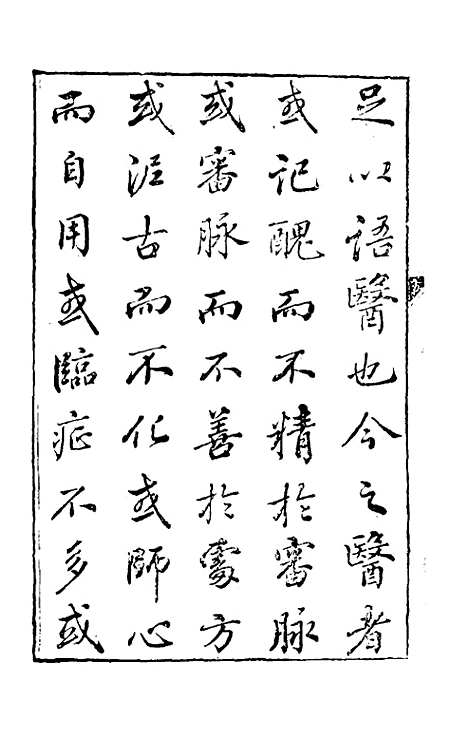 足以語醫也今之醫者
或记醜而不精於審脉
或審脉而不善於處方
或泥古而不化或師心
而自用或臨症不多或